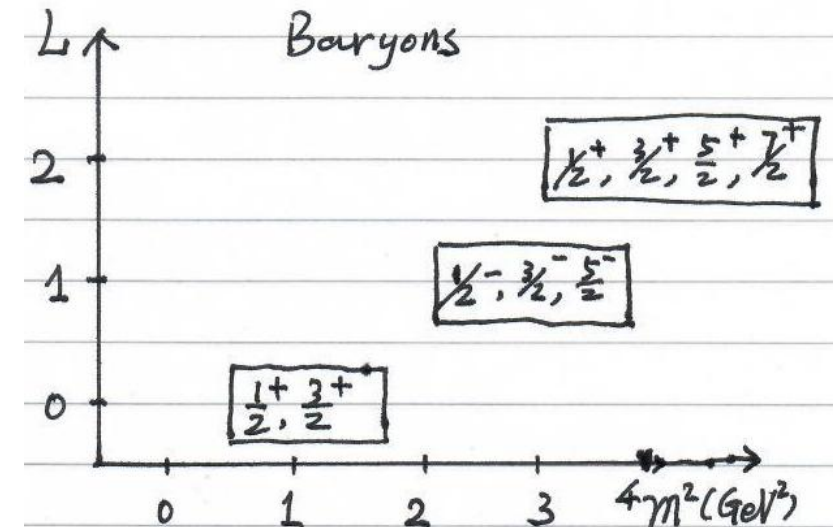 L Baryons
2 1/2⁺, 3/2⁺, 5/2⁺, 7/2⁺
1 1/2⁻, 3/2⁻, 5/2⁻
0 1/2⁺, 3/2⁺
0 1 2 3 4 m² (GeV²)